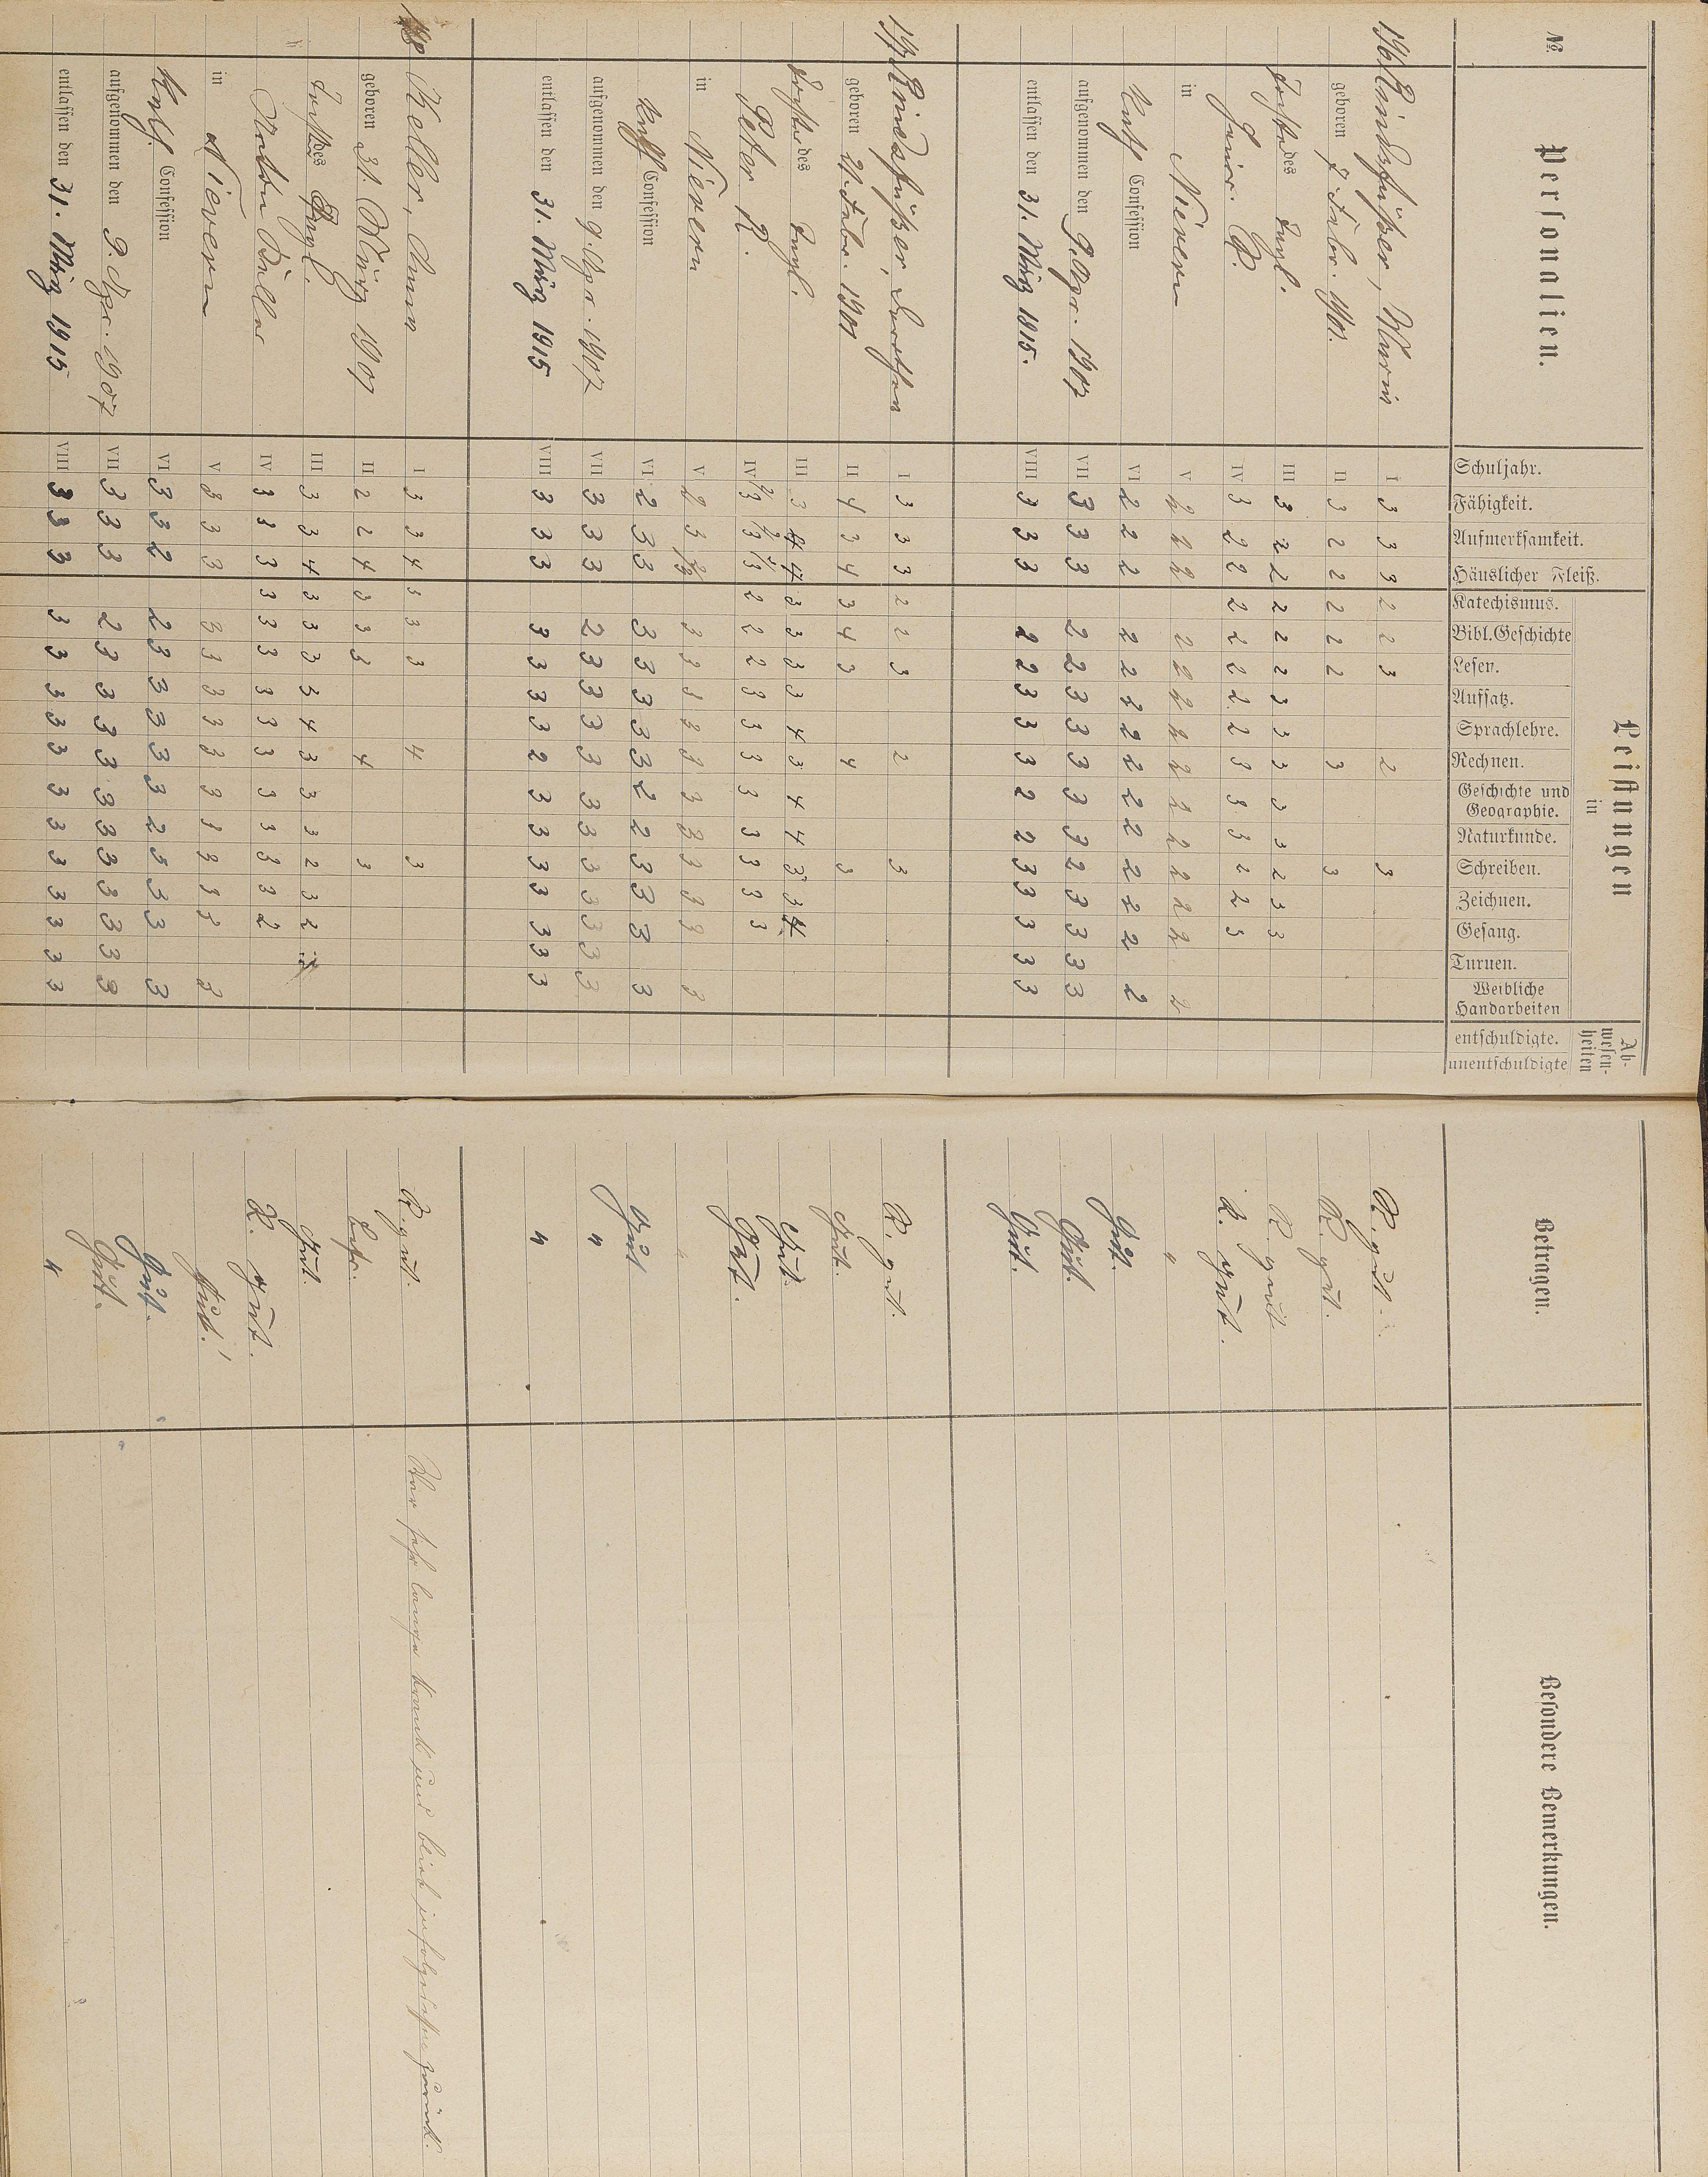 № Personalien. Schuljahr. Fähigkeit. Aufmerksamkeit. Häuslicher Fleiß. Leistungen in Katechismus. Bibl. Geschichte Lesen. Aufsatz. Sprachlehre. Rechnen. Geschichte und Geographie. Naturkunde. Schreiben. Zeichnen. Gesang. Turnen. Weibliche Handarbeiten Abwesenheiten entschuldigte. unentschuldigte Betragen. Besondere Bemerkungen.
196 Maria I 3 3 3 2 2 3 2 3 R. gut.
geboren 7. Febr. 1901. II 3 2 2 2 2 2 3 3 R. gut.
Tochter des Tagl. III 3 2 2 2 2 2 3 3 3 3 3 2 3 3 R. gut.
R. IV 3 2 2 2 2 2 2 2 3 3 3 2 2 3 R. gut.
in Nievern V 2 2 2 2 2 2 2 2 2 2 2 2 2 2 "
Kath Confession VI 2 2 2 2 2 2 2 2 2 2 2 2 2 2 Gut.
aufgenommen den 9. Apr. 1907 VII 3 3 3 2 2 3 3 3 3 3 2 3 3 3 3 Gut.
entlassen den 31. März 1915. VIII 3 3 3 2 2 3 3 3 2 2 3 3 3 3 3 Gut.
197 I 3 3 3 2 2 3 2 3 R. gut.
geboren 21. Febr. 1901 II 4 3 4 3 4 3 4 3 Gut.
Tochter des Tagl. III 3 4 4 3 3 3 3 4 3 4 4 3 3 4 Gut.
Peter R. IV 2/3 2/3 2/3 2 2 2 3 3 3 3 3 3 3 3 Gut.
in Nievern V 2 3 2/3 3 3 3 2 3 3 3 3 3 3 3 "
Kath Confession VI 2 3 3 3 3 3 3 3 2 2 3 3 3 3 Gut
aufgenommen den 9. Apr. 1907 VII 3 3 3 2 3 3 3 3 3 3 3 3 3 3 3 "
entlassen den 31. März 1915 VIII 3 3 3 3 3 3 3 2 3 3 3 3 3 3 3 "
198 Keller, Anna I 3 3 4 3 3 3 4 3 R. gut. War sehr lange krank und blieb infolgedessen zurück.
geboren 31. März 1901 II 2 2 4 3 3 3 4 3 Befr.
Tocht. des Tagl. III 3 3 4 3 3 3 3 4 3 3 3 2 3 2 Gut.
Keller IV 3 3 3 3 3 3 3 3 3 3 3 3 3 2 R. gut.
in Nievern V 3 3 3 3 3 3 3 3 3 3 3 3 3 3 Gut.
Kath. Confession VI 3 3 2 2 3 3 3 3 3 2 3 3 3 3 Gut.
aufgenommen den 9. Apr. 1907 VII 3 3 3 2 3 3 3 3 3 3 3 3 3 3 3 Gut.
entlassen den 31. März 1915 VIII 3 3 3 3 3 3 3 3 3 3 3 3 3 3 3 "